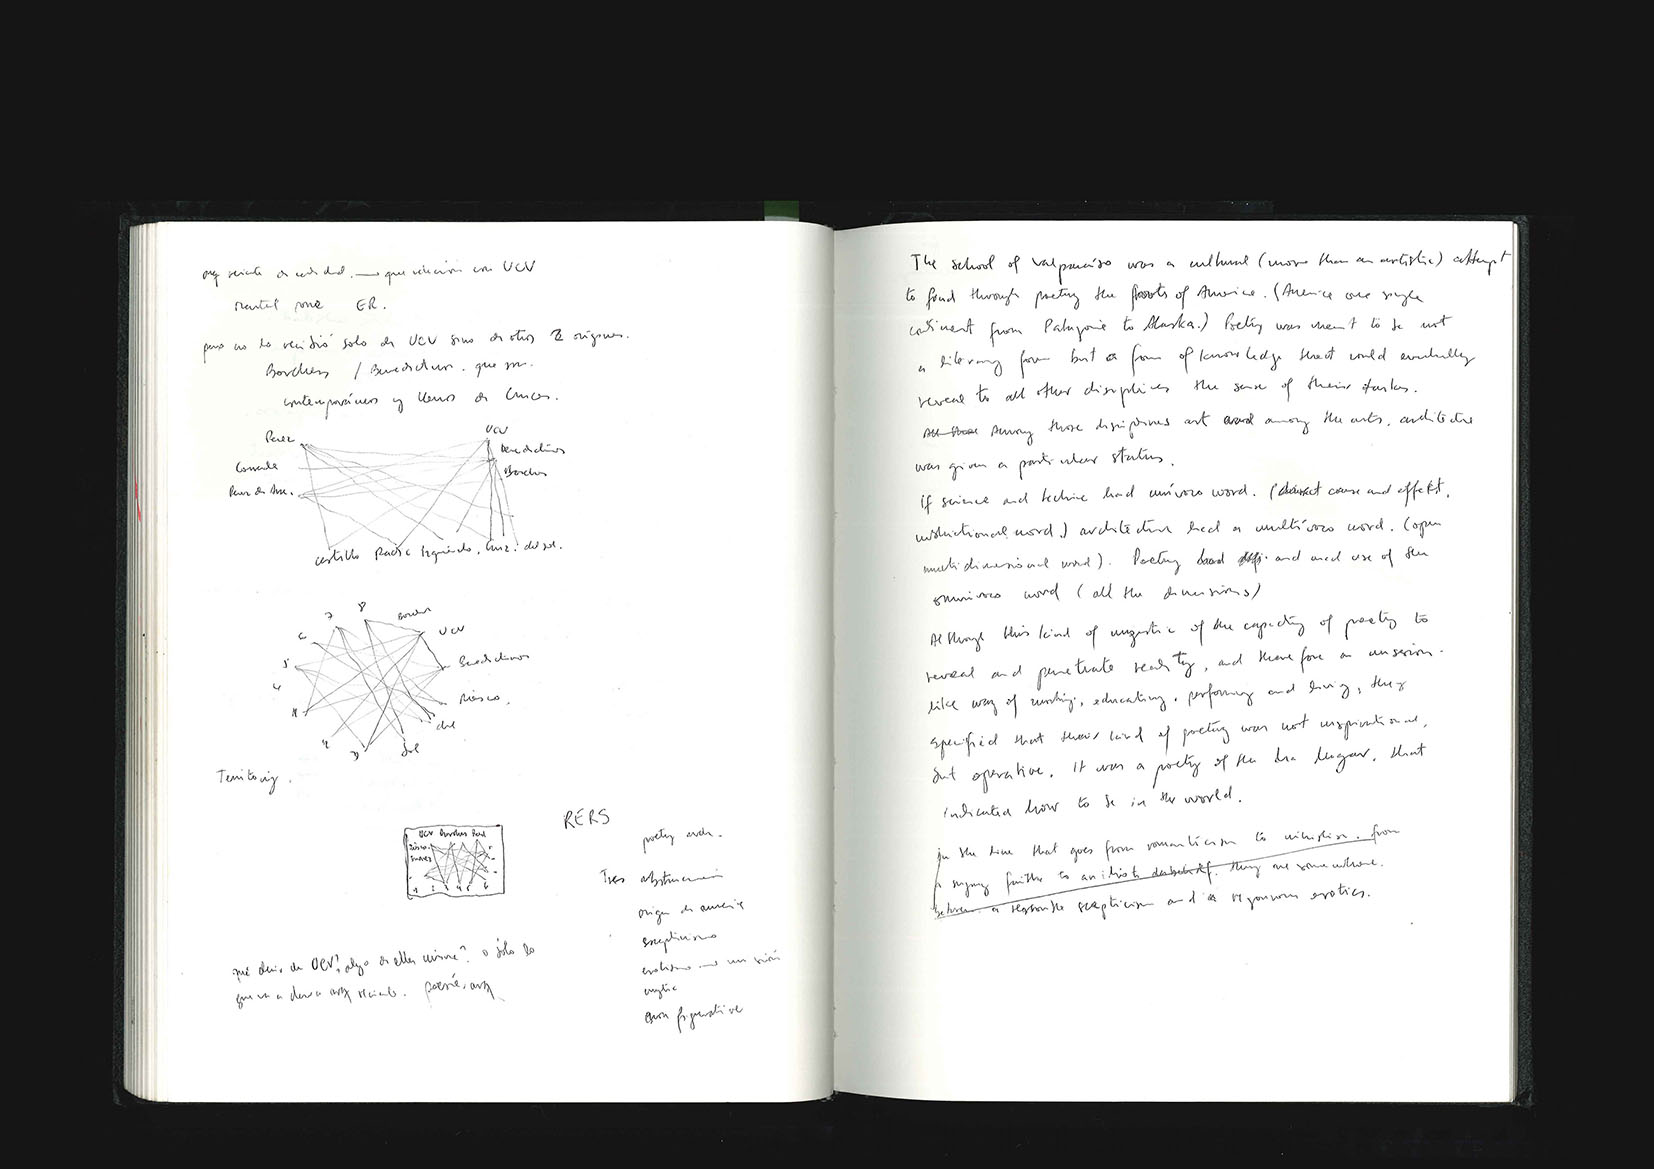 que relación con UCV
mental ER.
pero no lo recibió solo de UCV sino de otros 2 orígenes.
Borchers / Benedictinos. que son
contemporáneos y llenos de cruces.
Perez UCV
Benedictinos
Borchers
Perez de Arce.
Castillo Radic Izquierdo, Cruz. del sol.
8 Borchers
7 UCV
6
5 Benedictinos
4
Riesco,
del
2
Sol
Territory.
RERS
UCV Borchers
poetry arch.
Tres abstracción
origen de america
escepticismo
erotismo
mystic
non figurative
UCV? algo de ellos mismos? o sólo lo
que va a dar a arq reciente. poesía, arq
The school of Valparaíso was a cultural (more than an artistic) attempt
to found through poetry the roots of America. (America one single
continent from Patagonia to Alaska.) Poetry was meant to be not
a literary form but a form of knowledge that could eventually
reveal to all other disciplines the sense of their tasks.
All those Among those disciplines art and among the arts, architecture
was given a particular status.
If science and technic had unívoco word. (abstract cause and effekt,
instructional word.) architecture had a multívoco word. (open
multidimensional word). Poetry had and made use of the
omnívoco word (all the dimensions)
Although this kind of of the capacity of poetry to
reveal and penetrate reality, and therefore a
like way of working, educating, performing and living, they
specified that their kind of poetry was not inspirational,
but operative. It was a poetry of the ha lugar, that
indicated how to be in the world.
In the line that goes from romanticism to nihilism. from
to they are somewhere
between a reasonable skepticism and a rigourous erotics.